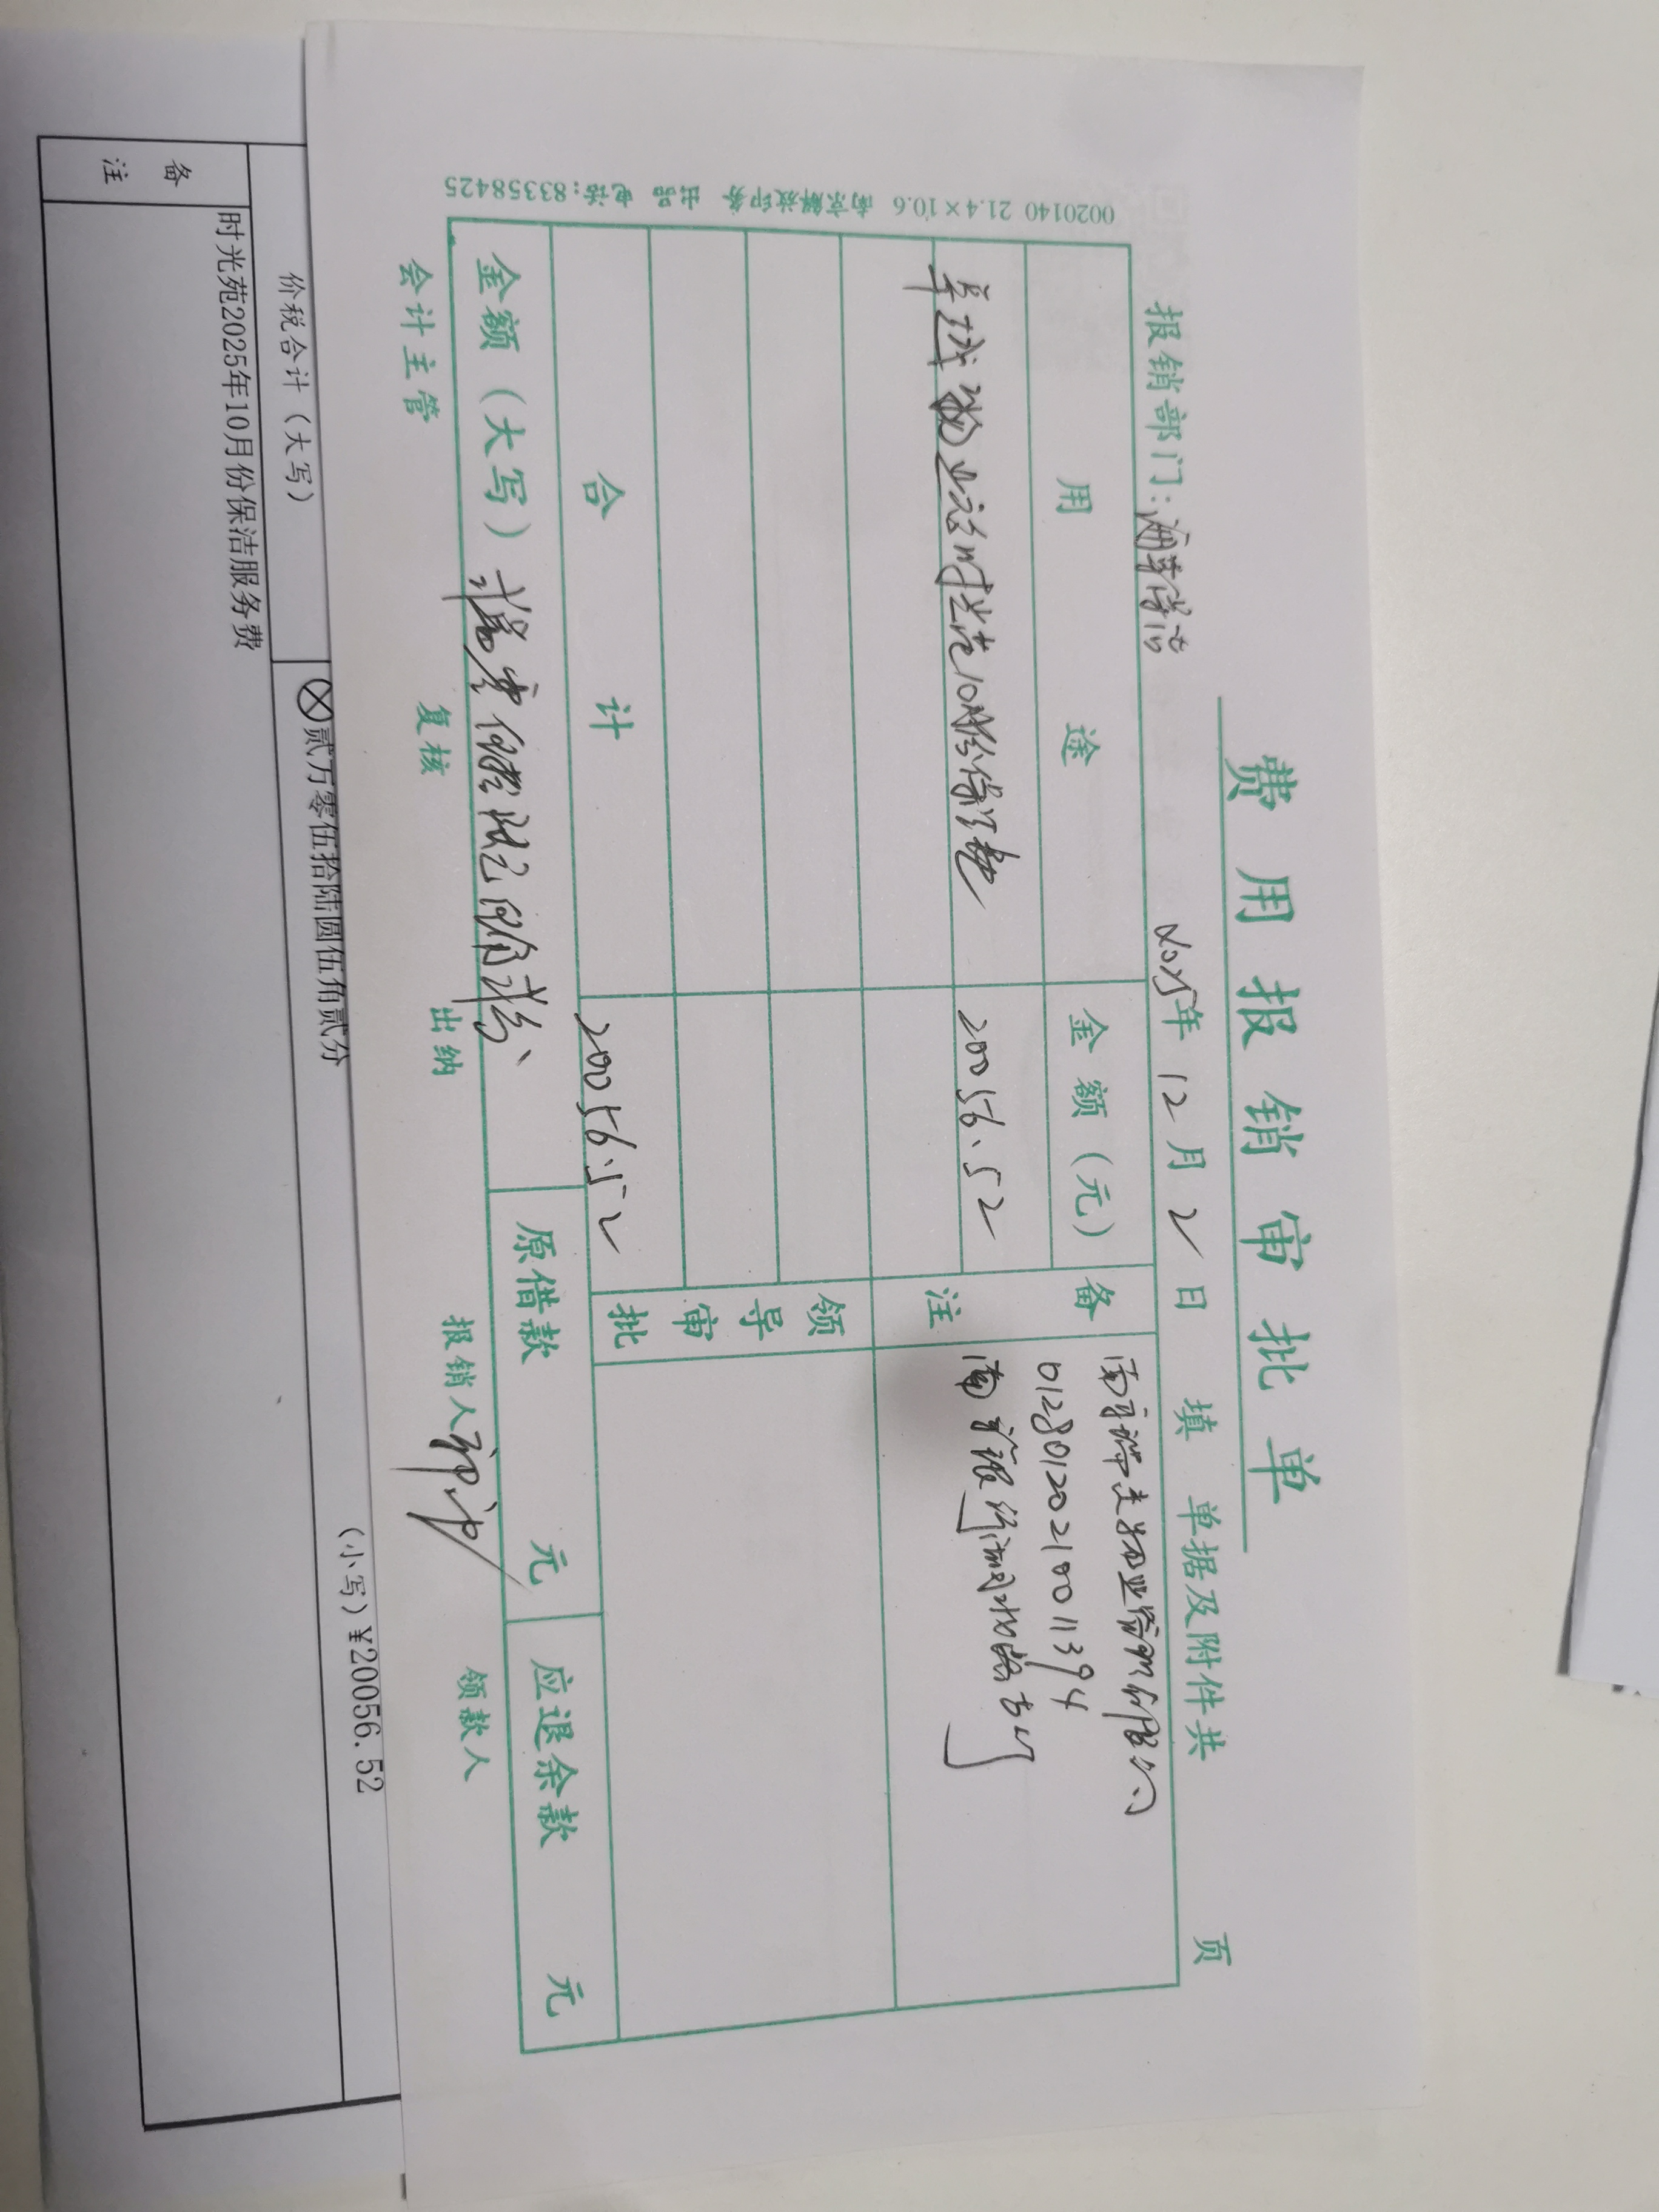 费用报销审批单
报销部门:
2025年12月2日 填 单据及附件共 页
用途 金额(元) 备注
物业 时光苑10月份保洁费 20056.52
南京 物业管理有限公司
01280120210011394
南京银行 支行
领导审批
合计 20056.52
金额(大写) 贰万零伍拾陆元伍角贰分 原借款 元 应退余款 元
会计主管 复核 出纳 报销人 领款人
0020140 21.4×10.6 南京解放印务 出品 电话:83358425
价税合计(大写) ⊗贰万零伍拾陆圆伍角贰分 (小写)¥20056.52
备注 时光苑2025年10月份保洁服务费